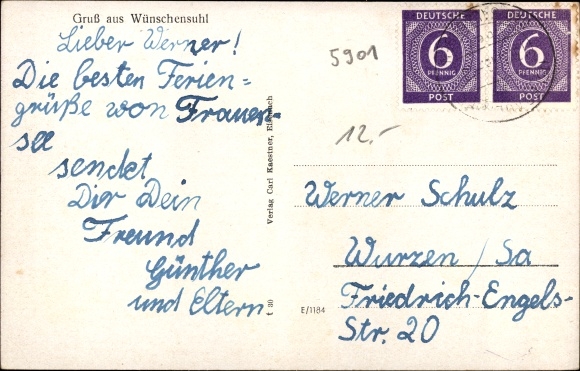 Gruß aus Wünschensuhl
Lieber Werner!
Die besten Ferien=
grüße von Frauen-
see
sendet
Dir Dein
Freund
Günther
und Eltern
Verlag Carl Kaestner, Eisenach
t 30
E/1184
5901
12.-
DEUTSCHE
6
PFENNIG
POST
DEUTSCHE
6
PFENNIG
POST
Werner Schulz
Wurzen/Sa
Friedrich-Engels-
Str. 20